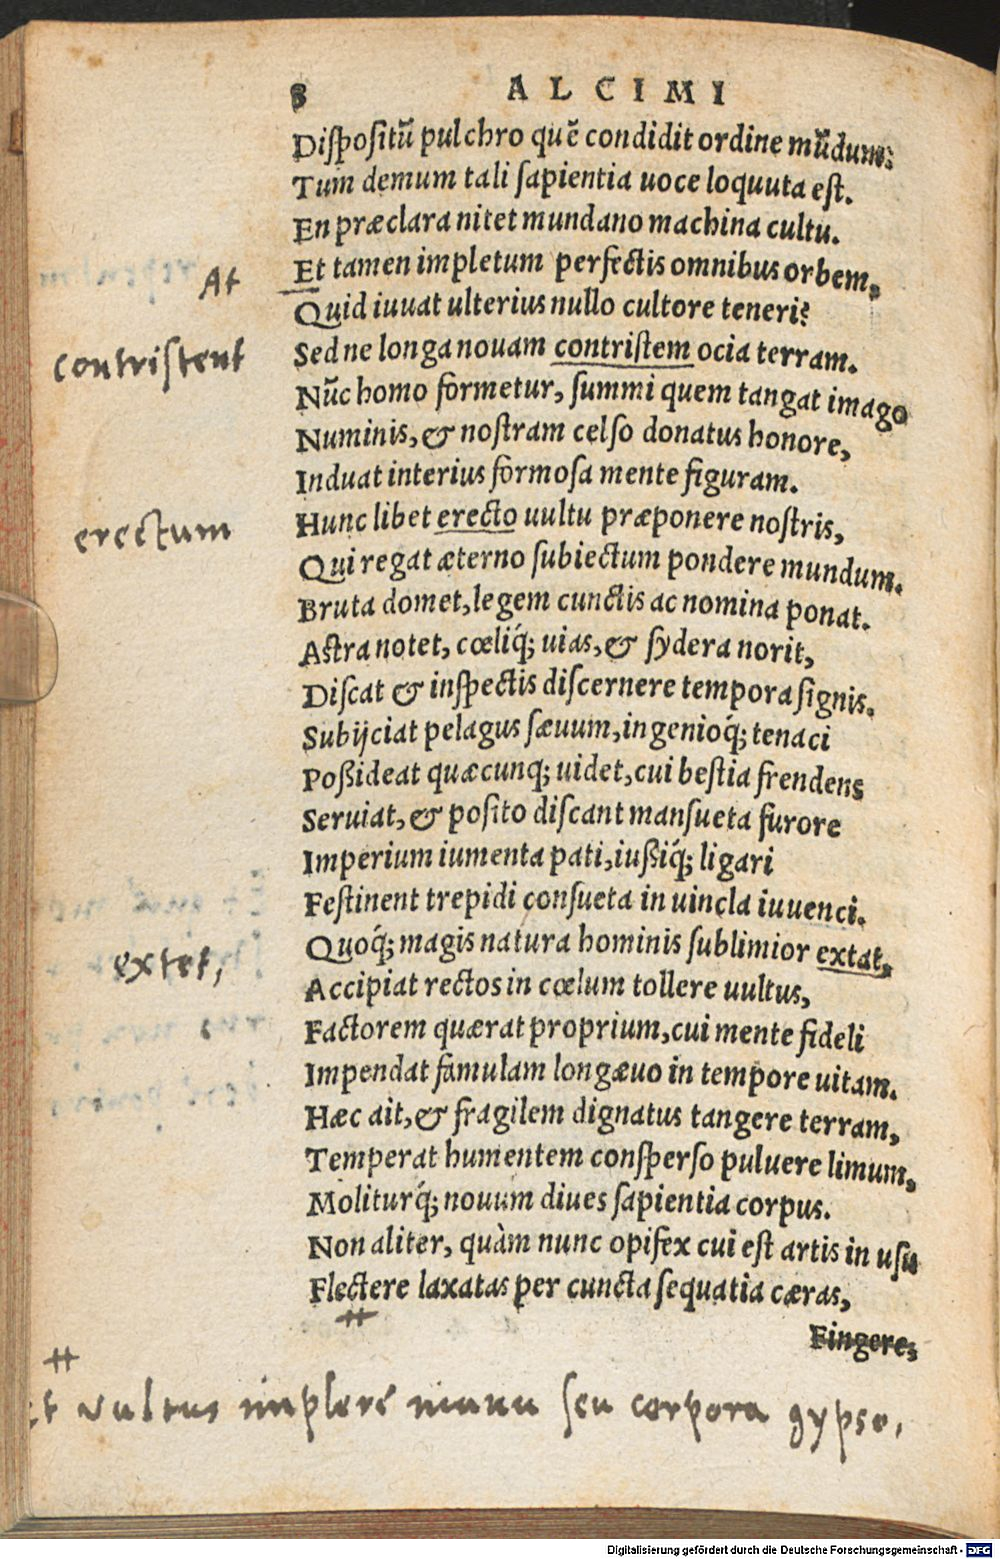 8 ALCIMI
Diſpoſitũ pulchro quẽ condidit ordine mũdum:
Tum demum tali ſapientia uoce loquuta eſt.
En præclara nitet mundano machina cultu.
At
Et tamen impletum perfectis omnibus orbem,
Quid iuuat ulterius nullo cultore teneri?
contriſtent
Sed ne longa nouam contriſtem ocia terram.
Nũc homo formetur, ſummi quem tangat imago
Numinis, & noſtram celſo donatus honore,
Induat interius formoſa mente figuram.
erectum
Hunc libet erecto uultu præponere noſtris,
Qui regat æterno ſubiectum pondere mundum.
Bruta domet, legem cunctis ac nomina ponat.
Aſtra notet, cœliq́; uias, & ſydera norit,
Diſcat & inſpectis diſcernere tempora ſignis.
Subijciat pelagus ſæuum, ingenioq́; tenaci
Poßideat quæcunq; uidet, cui beſtia frendens
Seruiat, & poſito diſcant manſueta furore
Imperium iumenta pati, iußiq́; ligari
Feſtinent trepidi conſueta in uincla iuuenci.
extet,
Quoq́; magis natura hominis ſublimior extat,
Accipiat rectos in cœlum tollere uultus,
Factorem quærat proprium, cui mente fideli
Impendat famulam longæuo in tempore uitam.
Hæc ait, & fragilem dignatus tangere terram,
Temperat humentem conſperſo puluere limum,
Moliturq́; nouum diues ſapientia corpus.
Non aliter, quàm nunc opifex cui eſt artis in uſu
Flectere laxatas per cuncta ſequatia cæras,
Fingere,
et vultus implere manu ſeu corpora gypso,
Digitalisierung gefördert durch die Deutsche Forschungsgemeinschaft - DFG